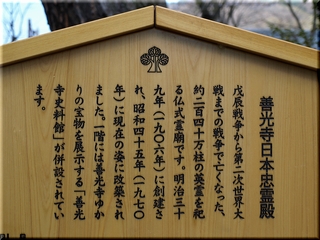 善光寺日本忠霊殿
戊辰戦争から第二次世界大
戦までの戦争で亡くなった、
約二百四十万柱の英霊を祀
る仏式霊廟です。明治三十
九年(一九〇六年)に創建さ
れ、昭和四十五年(一九七〇
年)に現在の姿に改築され
ました。一階には善光寺ゆか
りの宝物を展示する「善光
寺史料館」が併設されてい
ます。